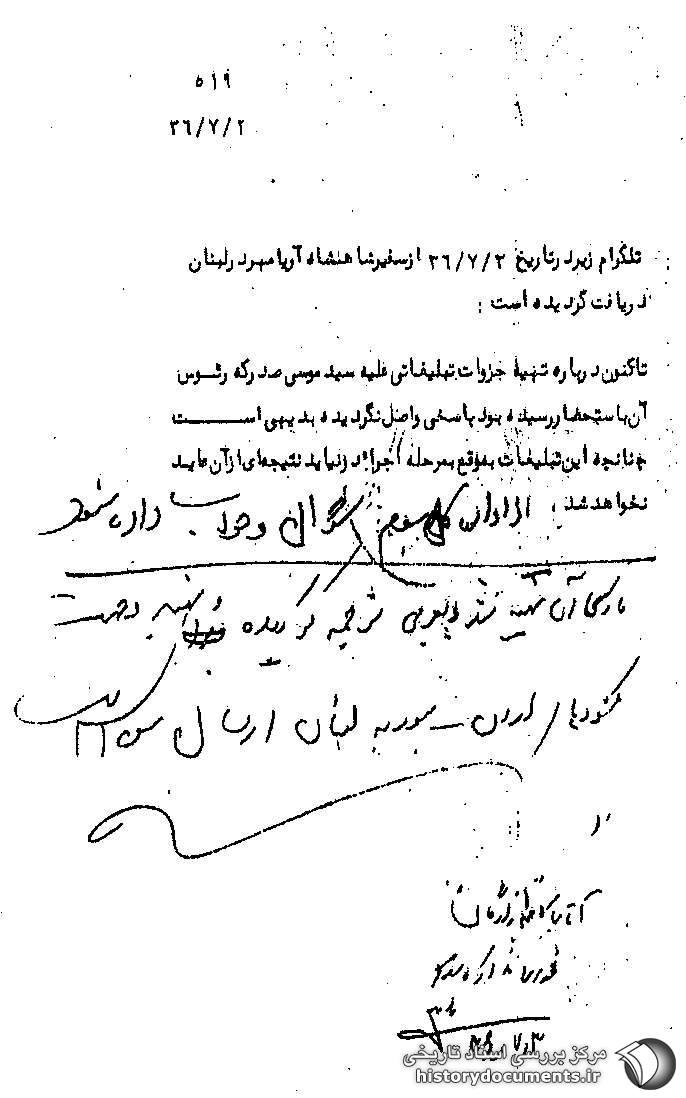 ۵۱۹
۳۶/۷/۲
تلگرام زیر در تاریخ ۳۶/۷/۲ از سفیر شاهنشاه آریامهر در لبنان
دریافت گردیده است :
تاکنون درباره تهیهٔ جزوات تبلیغاتی علیه سید موسی صدر که رئوس
آن باستحضار رسیده بود پاسخی واصل نگردیده بدیهی است
چنانچه این تبلیغات بموقع بمرحله اجرا در نیاید نتیجه‌ای از آن عاید
نخواهد شد .
از اداره کل سوم سوال و جواب داده شود
آن تهیه شد بعربی ترجمه گردیده
کشورها اردن سوریه لبنان ارسال
آقای
۳۶/۷/۳
مرکز بررسی اسناد تاریخی
historydocuments.ir